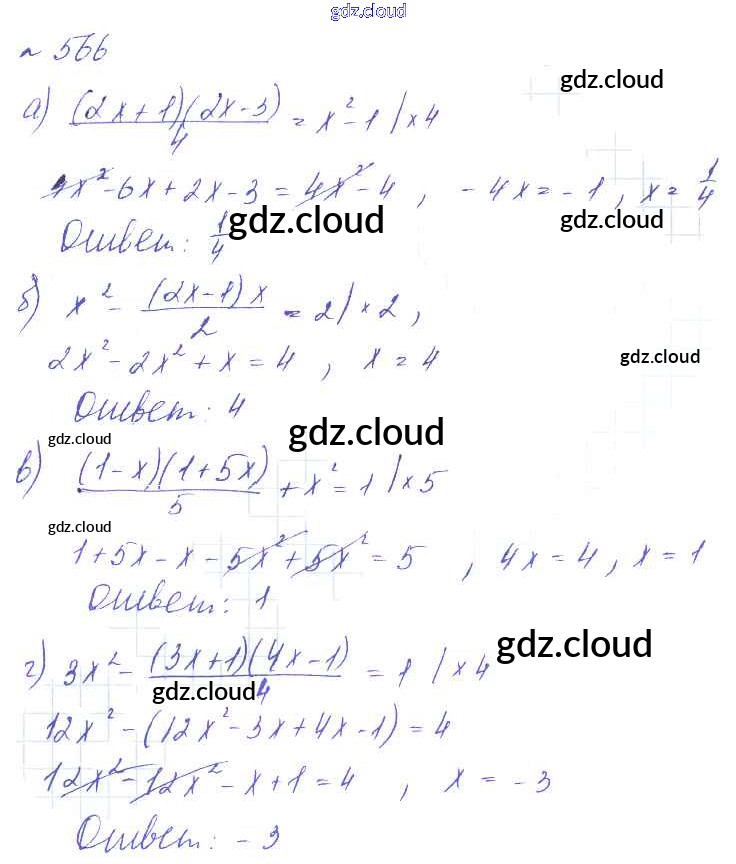 gdz.cloud
№ 566
gdz.cloud
а) (2x+1)(2x-3)/4 = x²-1 | ×4
4x²-6x+2x-3 = 4x²-4, -4x = -1, x = 1/4
gdz.cloud gdz.cloud
Ответ: 1/4
б) x² - (2x-1)x/2 = 2 | ×2,
2x²-2x²+x = 4, x = 4
gdz.cloud
Ответ: 4
gdz.cloud gdz.cloud
в) (1-x)(1+5x)/5 + x² = 1 | ×5
gdz.cloud
1+5x-x-5x²+5x² = 5, 4x = 4, x = 1
Ответ: 1
gdz.cloud
г) 3x² - (3x+1)(4x-1)/4 = 1 | ×4
gdz.cloud
12x² - (12x²-3x+4x-1) = 4
12x²-12x²-x+1 = 4, x = -3
Ответ: -3